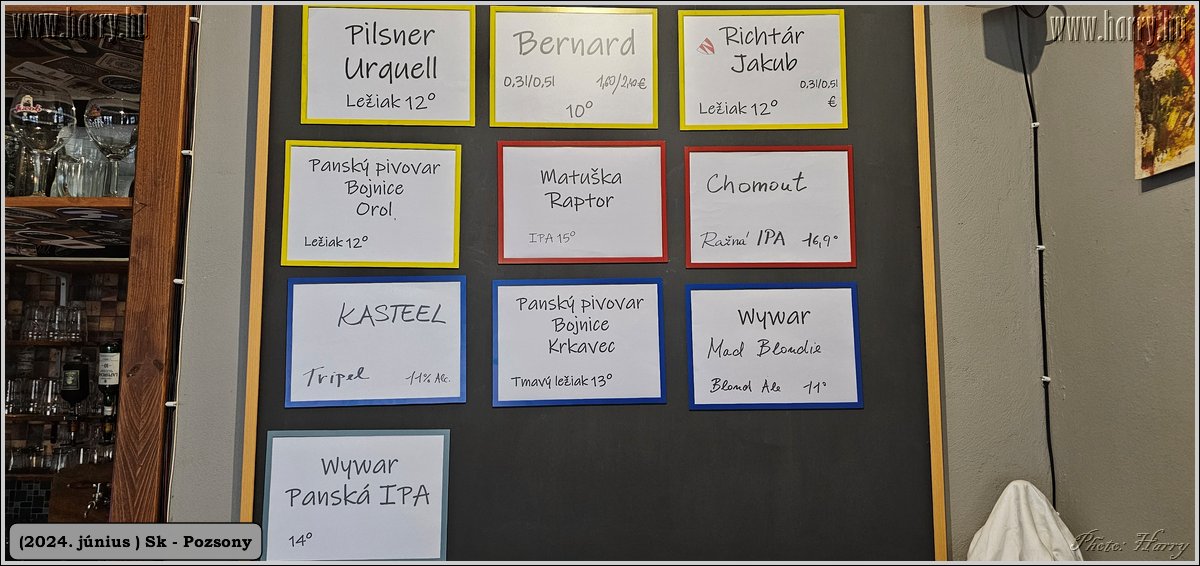 www.harry.hu
www.harry.hu
Pilsner
Urquell
Ležiak 12°
Bernard
0,3l/0,5l 1,60/2,10€
10°
Richtár
Jakub
0,3l/0,5l
€
Ležiak 12°
Panský pivovar
Bojnice
Orol
Ležiak 12°
Matuška
Raptor
IPA 15°
Chomout
Ražná IPA 16,9°
KASTEEL
Tripel 11% Alc.
Panský pivovar
Bojnice
Krkavec
Tmavý ležiak 13°
Wywar
Mad Blondie
Blond Ale 11°
Wywar
Panská IPA
14°
(2024. június ) Sk - Pozsony
Photo: Harry